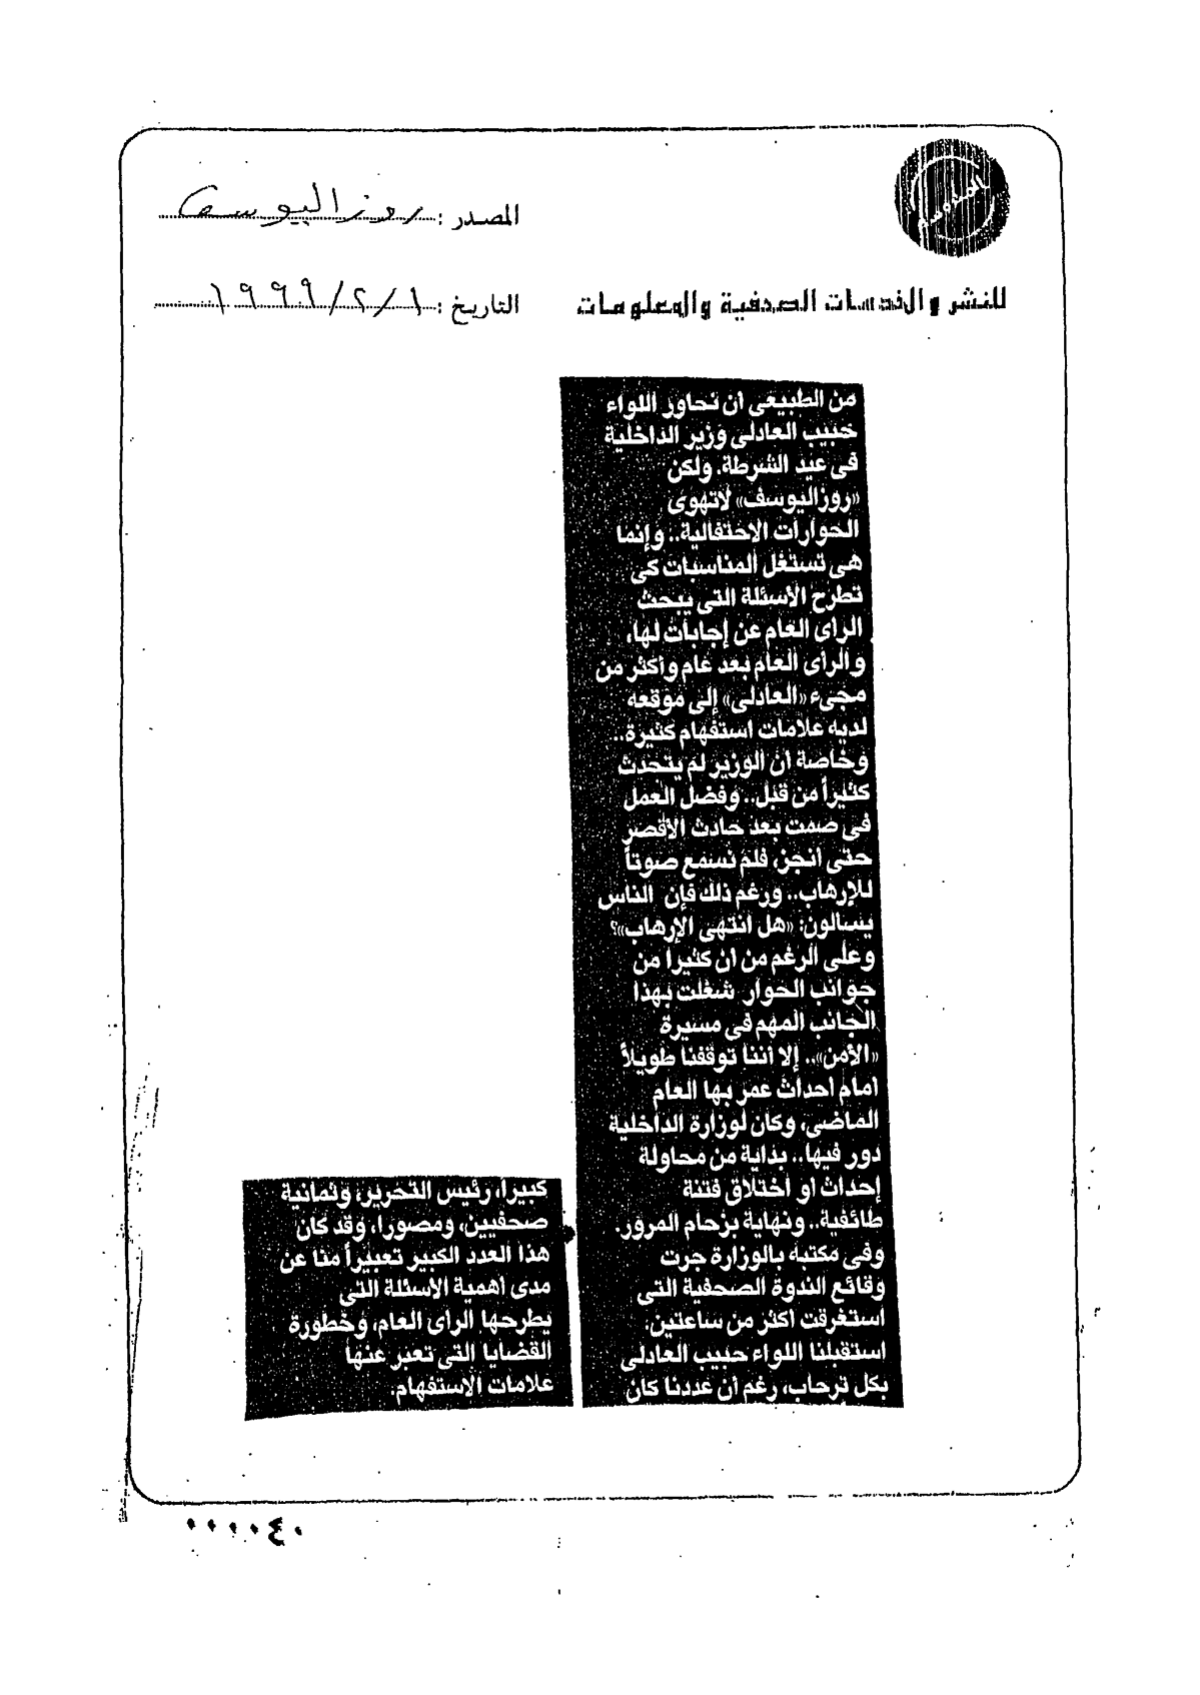 المصدر : روز اليوسف
للنشر والخدمات الصحفية والمعلومات
التاريخ : ١ / ٢ / ١٩٩٩
من الطبيعى أن نحاور اللواء
حبيب العادلى وزير الداخلية
فى عيد الشرطة. ولكن
«روزاليوسف» لاتهوى
الحوارات الاحتفالية.. وإنما
هى تستغل المناسبات كى
تطرح الأسئلة التى يبحث
الرأى العام عن إجابات لها،
والرأى العام بعد عام وأكثر من
مجىء «العادلى» إلى موقعه
لديه علامات استفهام كثيرة..
وخاصة أن الوزير لم يتحدث
كثيراً من قبل.. وفضل العمل
فى صمت بعد حادث الأقصر
حتى أنجز، فلم نسمع صوتاً
للإرهاب.. ورغم ذلك فإن الناس
يسألون: «هل انتهى الإرهاب»؟
وعلى الرغم من أن كثيرا من
جوانب الحوار شغلت بهذا
الجانب المهم فى مسيرة
«الأمن».. إلا أننا توقفنا طويلاً
أمام أحداث عمر بها العام
الماضى، وكان لوزارة الداخلية
دور فيها.. بداية من محاولة
إحداث أو اختلاق فتنة
طائفية.. ونهاية بزحام المرور.
وفى مكتبه بالوزارة جرت
وقائع الندوة الصحفية التى
استغرقت أكثر من ساعتين.
استقبلنا اللواء حبيب العادلى
بكل ترحاب، رغم أن عددنا كان
كبيرا، رئيس التحرير، وثمانية
صحفيين، ومصورا، وقد كان
هذا العدد الكبير تعبيراً منا عن
مدى أهمية الأسئلة التى
يطرحها الرأى العام، وخطورة
القضايا التى تعبر عنها
علامات الاستفهام.
٠٠٠٠٤٠